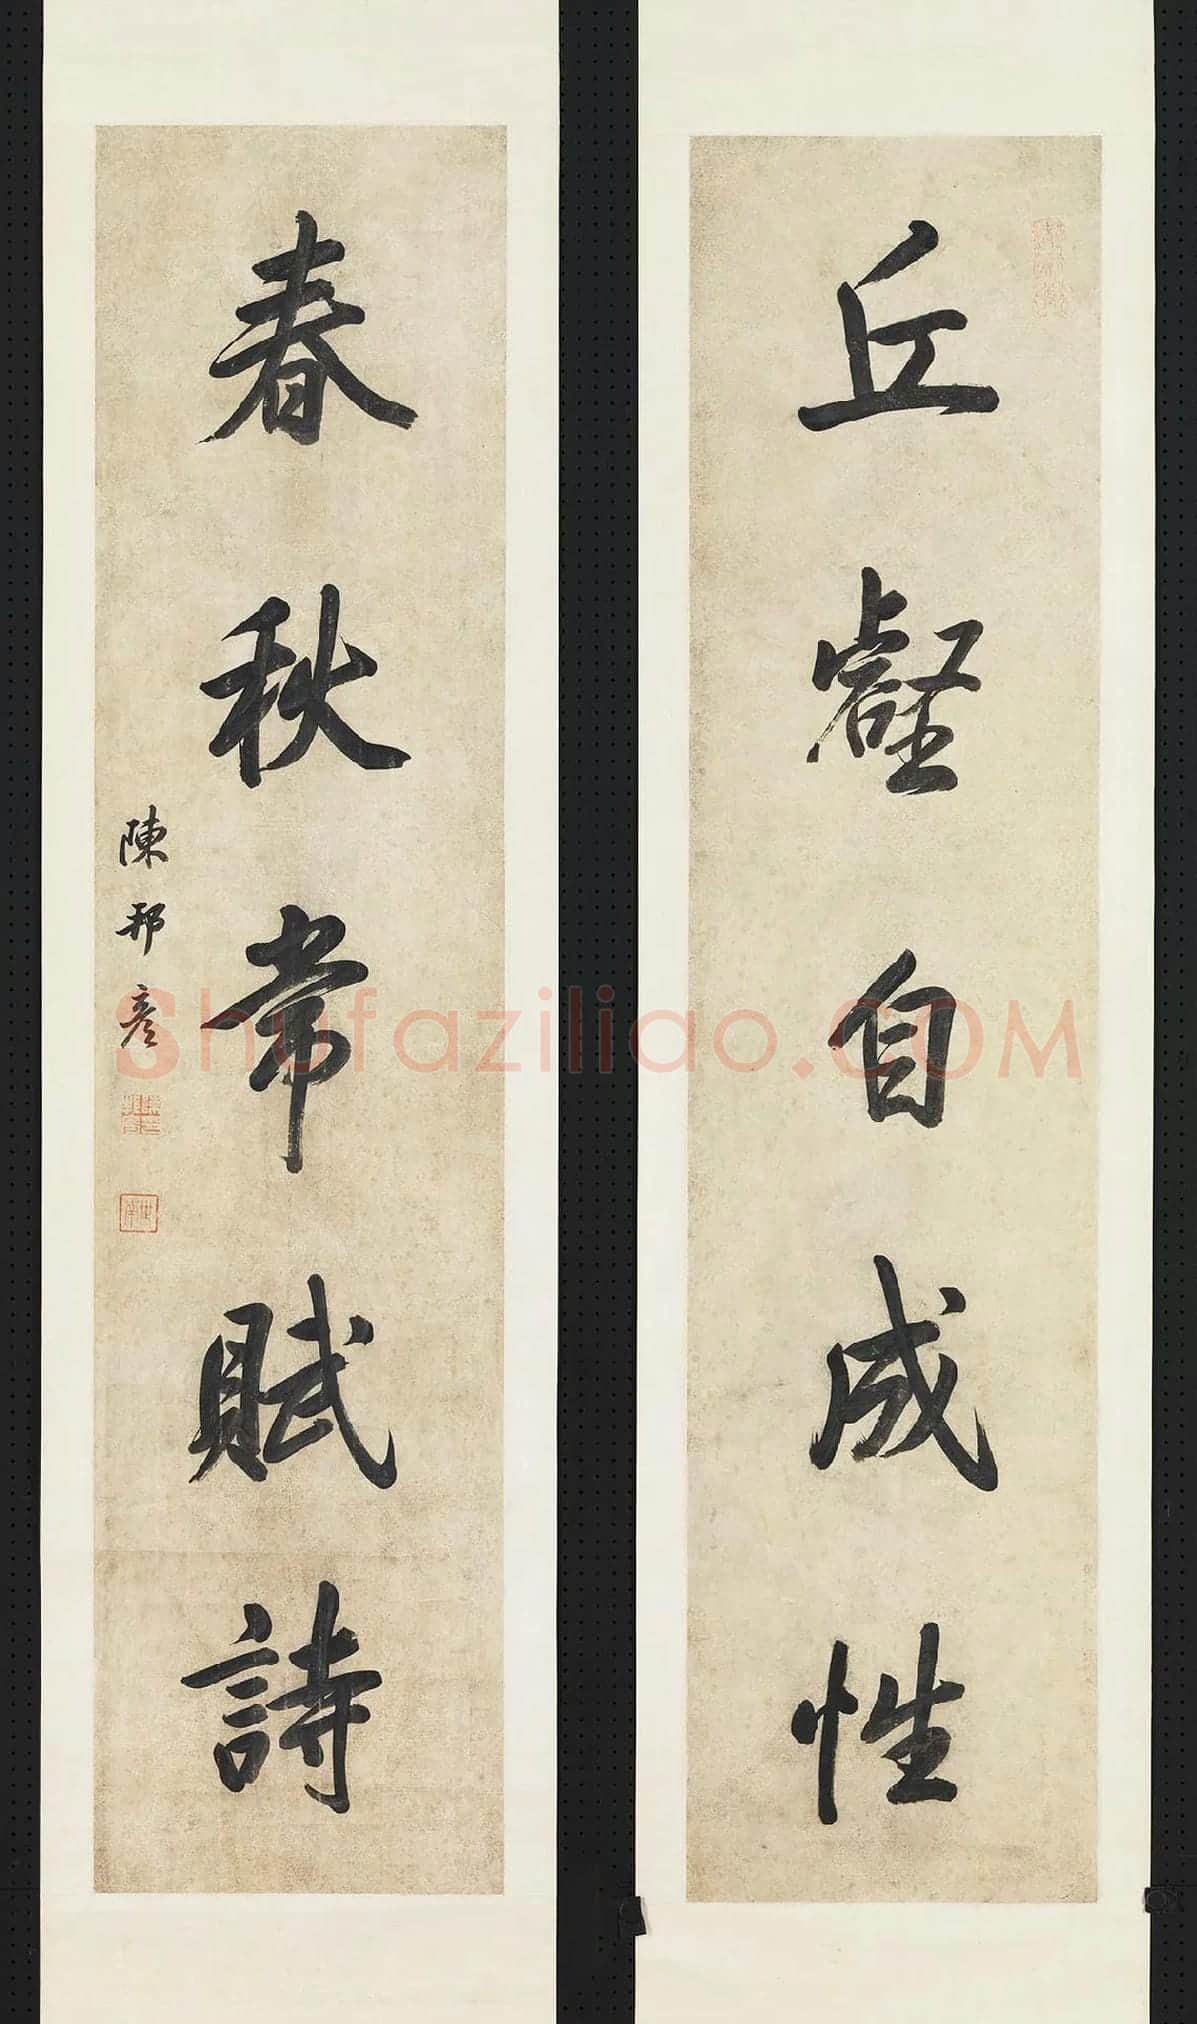 丘壑自成性
春秋常賦詩
陳邦彦
世南
Shufaziliao.COM